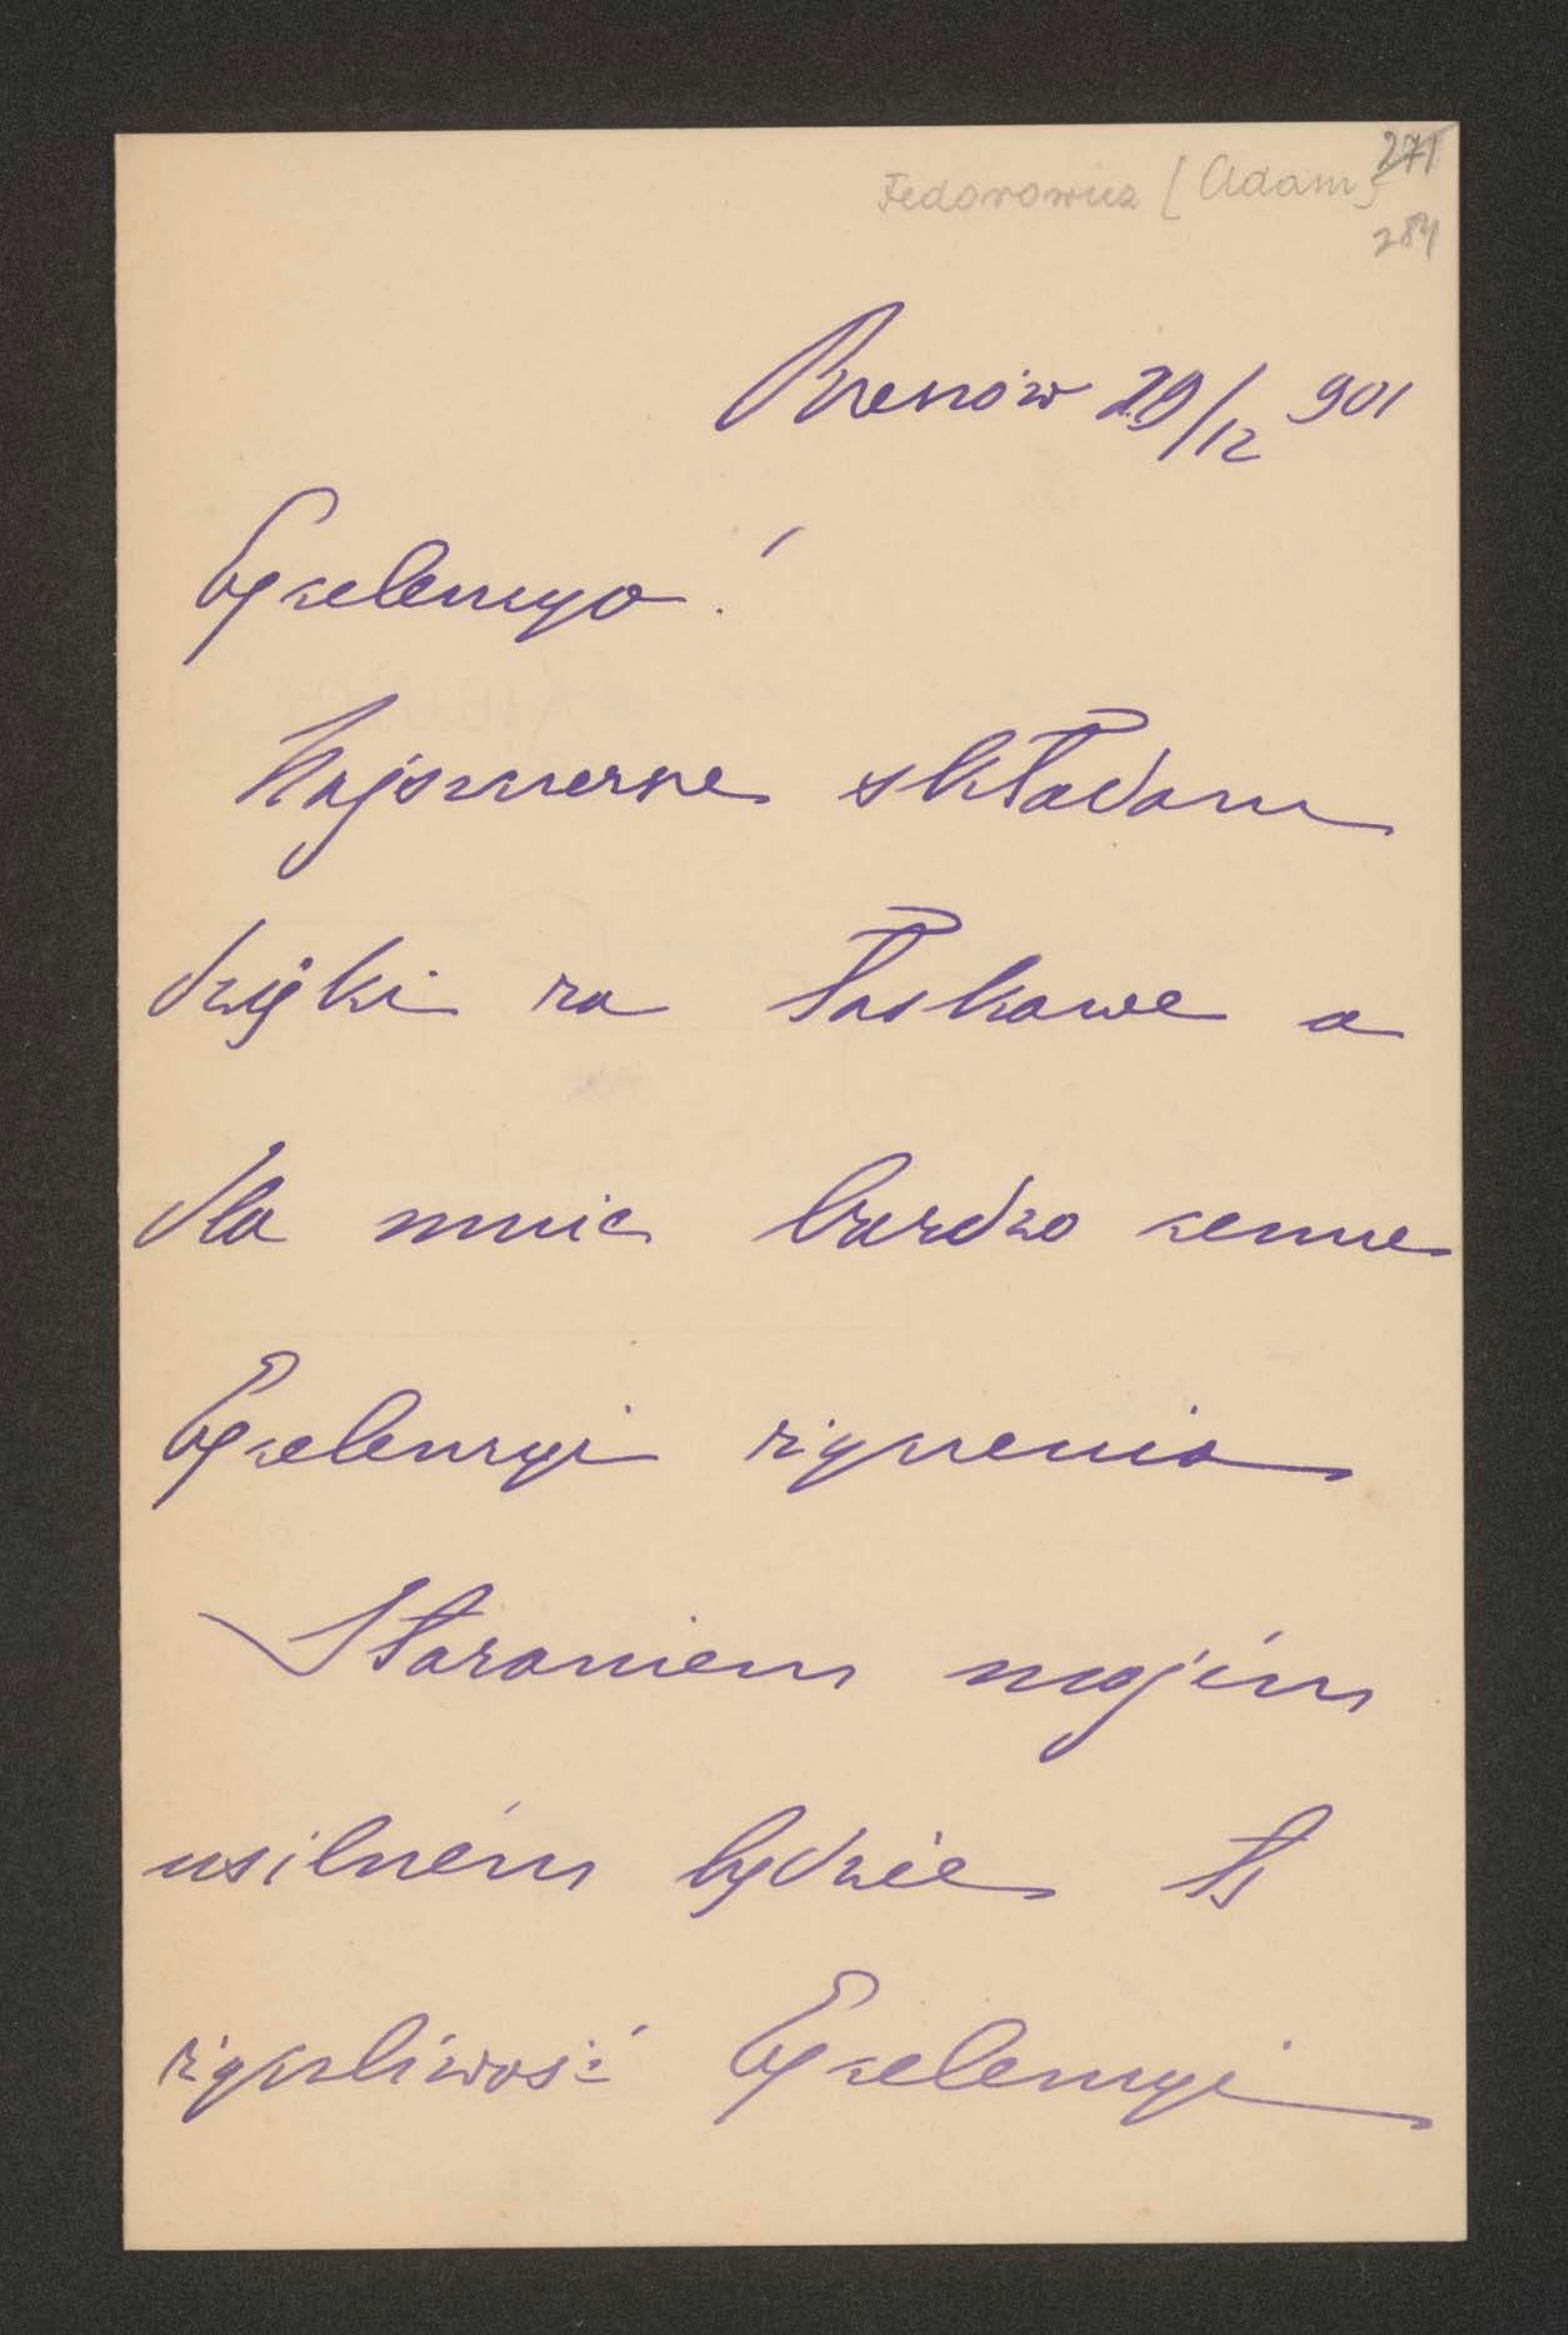 Fedorowicz [Adam] 271
284
29/12 901
Excelencyo!
Najszczersze składam
dzięki za łaskawe a
dla mnie bardzo cenne
Excelencyi życzenia
Staraniem mojém
usilném będzie tę
życzliwość Excelencyi